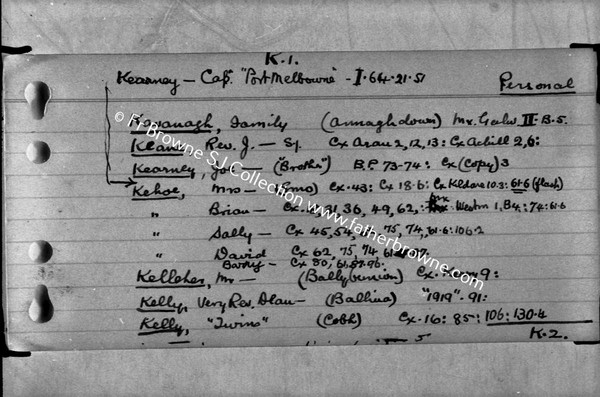 K.1.
Kearney - Cap. "Port Melbourne" - I.64.21.51
Personal
Kavanagh, Family (Annaghdown) Mx. Galw. II. B.5.
Keane, Rev. J. - Sj. Cx Aran 2,12,13: Cx Achill 2,6:
Kearney, - ("Brother") B.P. 73-74: Cx (Copy) 3
Kehoe, Mrs - Cx. 43: Cx 18.6: Cx Kildare 10.3: 61.6 (flash)
" Brian - 31, 36, 49, 62, Weston 1, B4: 74: 61.6
" Sally - Cx 45, 54, 75, 74, 61.6: 106.2
" David Cx 62, 75, 74
Barry - Cx 80,
Kelleher, Mr - (Ballybunion) Cx.
Kelly, Very Rev. Dean - (Ballina) "1919". 91:
Kelly, "Twins" (Cobh) Cx. 16: 85: 106: 130.4
K.2.
© Fr Browne S.J. Collection www.fatherbrowne.com